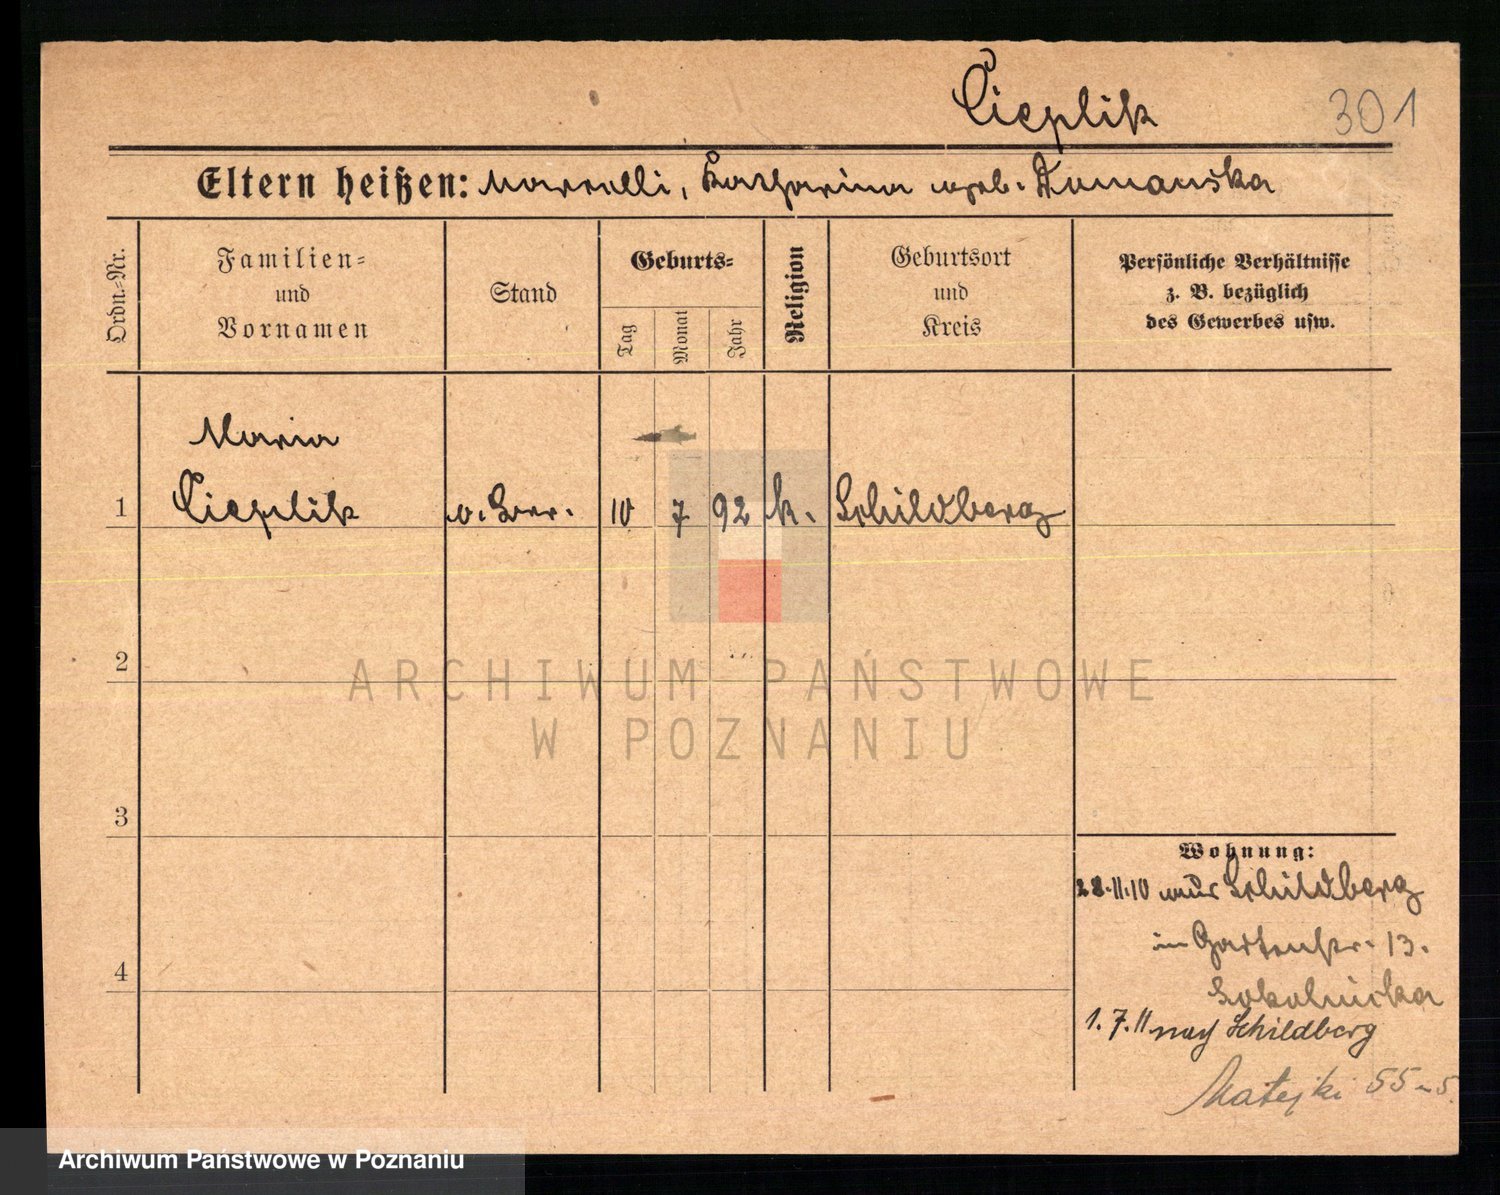 Cieplik 301
Eltern heißen: Marcelli, Katharina geb. Kumanska
Ordn.-Nr.
Familien-
und
Vornamen
Stand
Geburts-
Tag
Monat
Jahr
Religion
Geburtsort
und
Kreis
Persönliche Verhältnisse
z. B. bezüglich
des Gewerbes usw.
Maria
1 Cieplik 10 7 92 k. Schildberg
2
3
4
Wohnung:
28.11.10 aus Schildberg
in Gartenstr. 13.
Sokolnicka
1.7.11 nach Schildberg
Matejki 55
ARCHIWUM PAŃSTWOWE
W POZNANIU
Archiwum Państwowe w Poznaniu